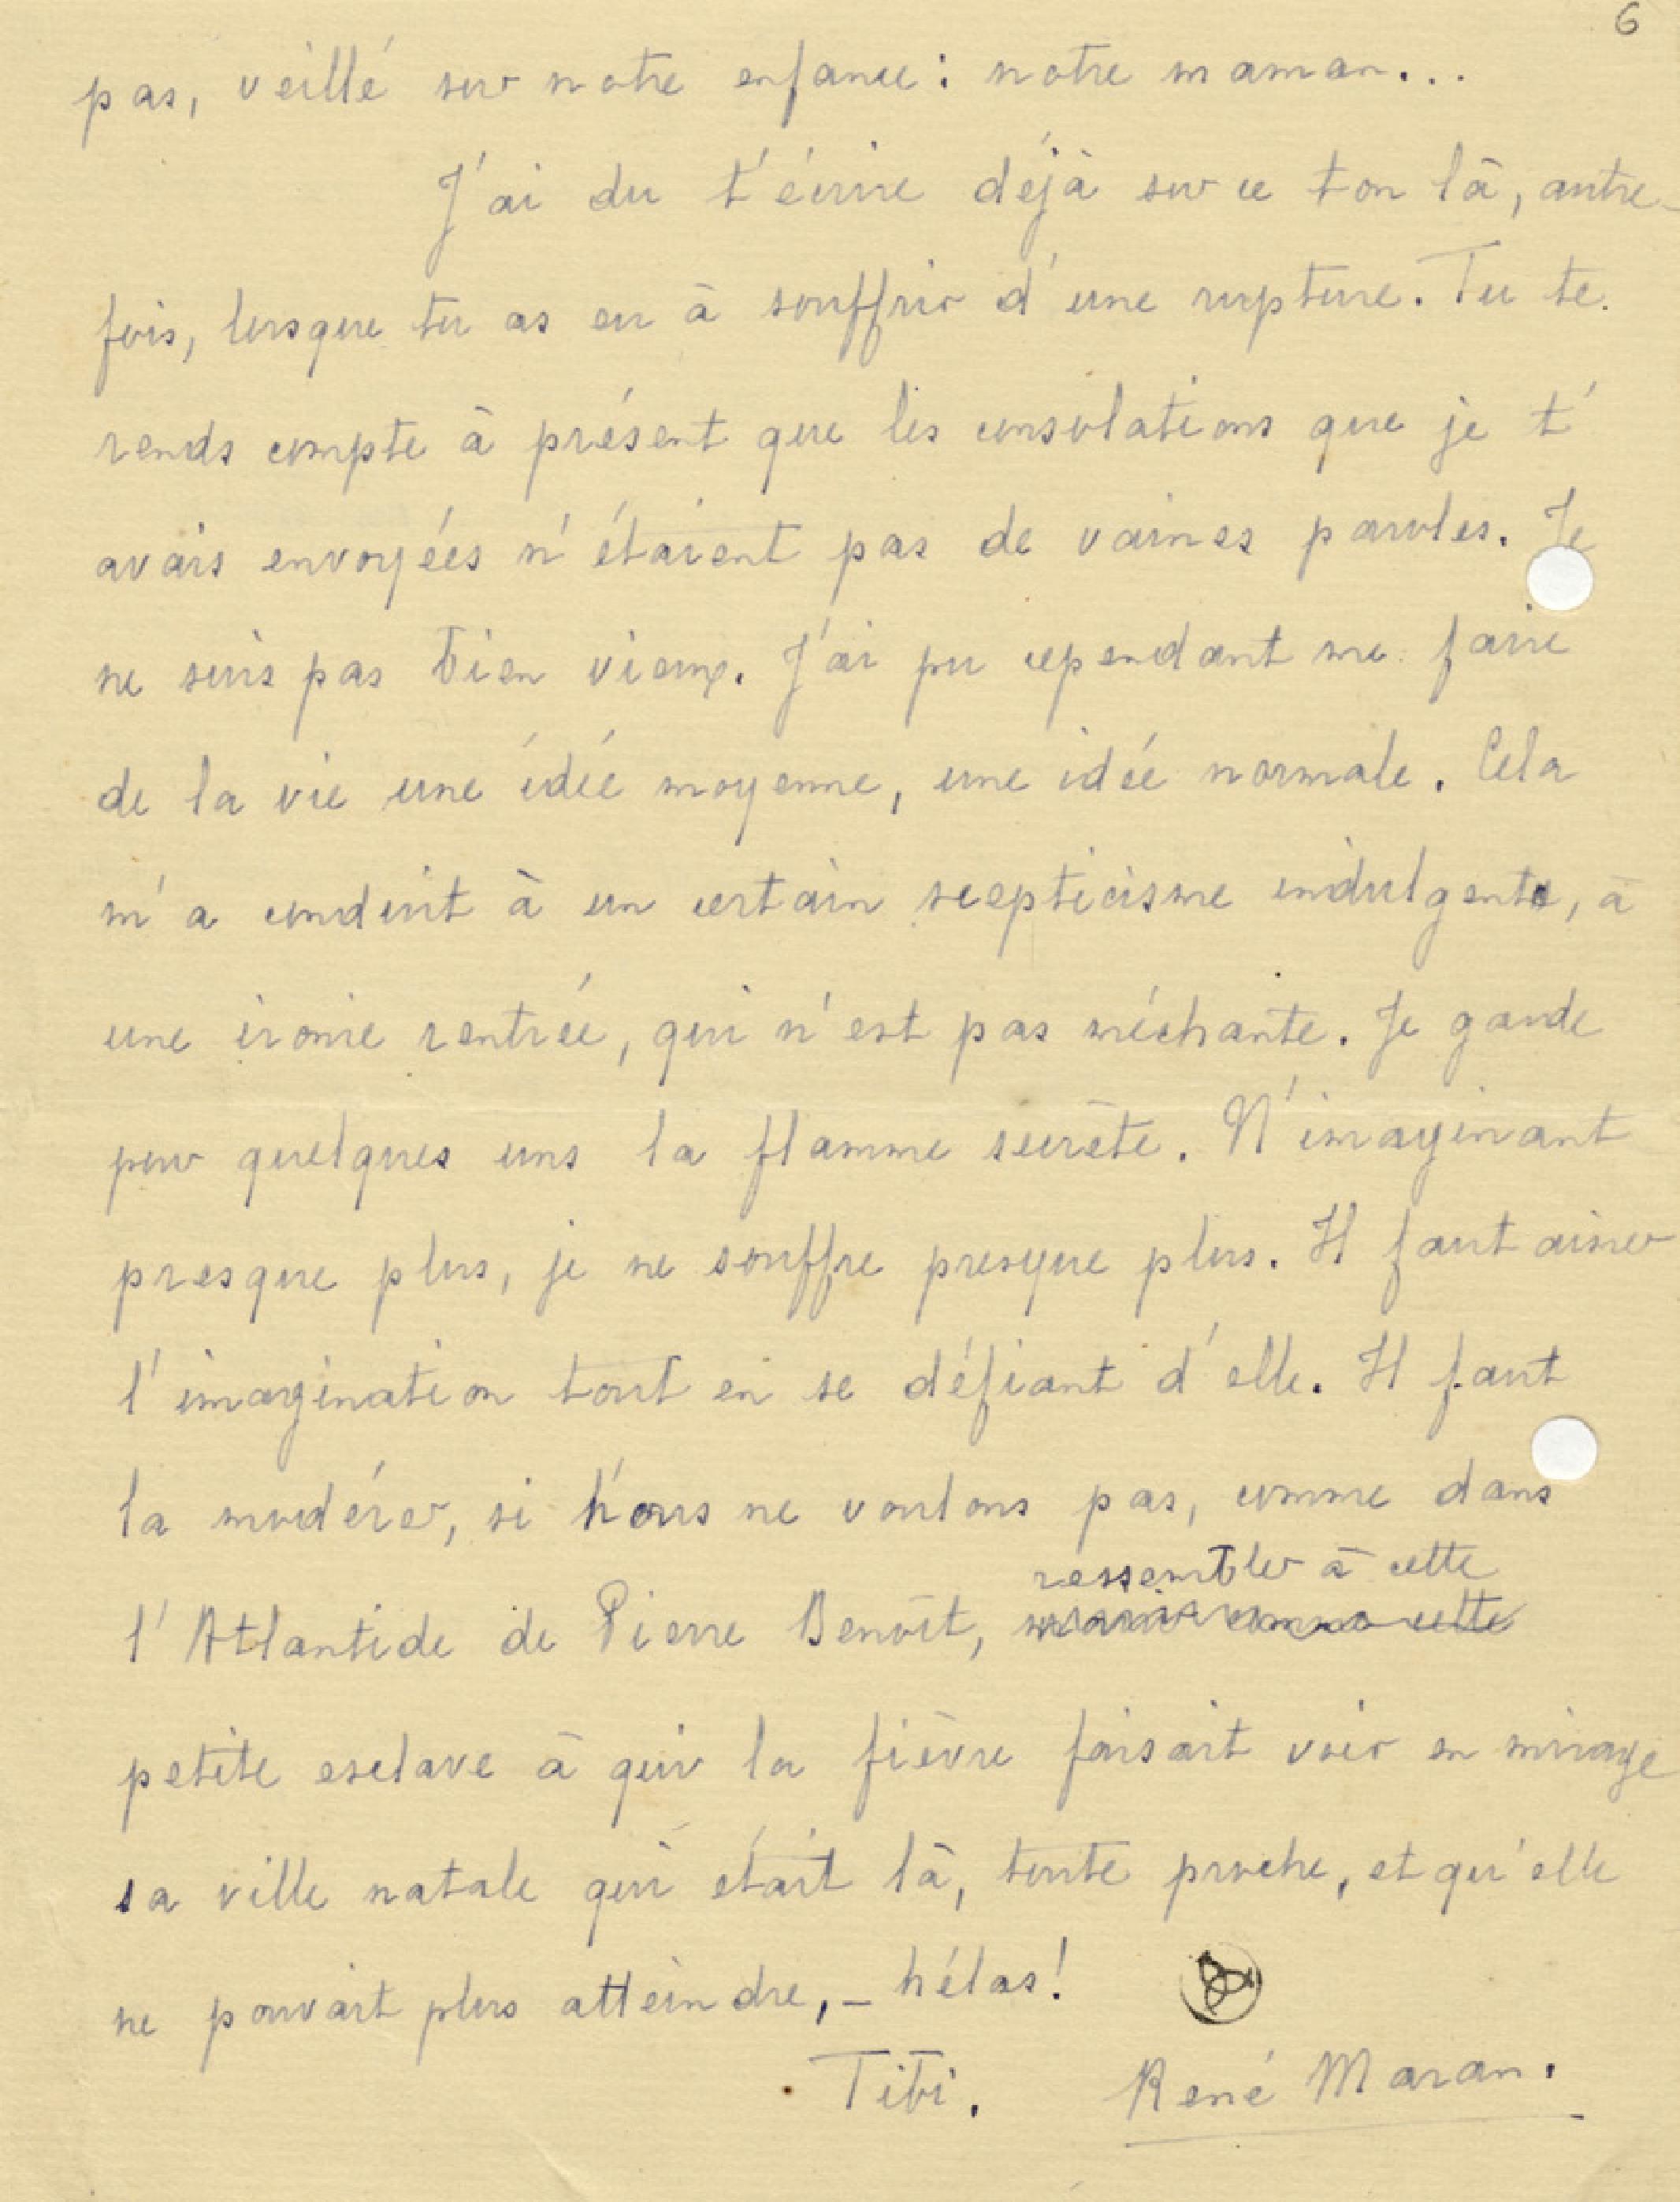 6
pas, veillé sur notre enfance : notre maman...
J'ai du t'écrire déjà sur ce ton là, autre-
fois, lorsque tu as eu à souffrir d'une rupture. Tu te
rends compte à présent que les consolations que je t'
avais envoyées n'étaient pas de vaines paroles. Je
ne suis pas bien vieux. J'ai pu cependant me faire
de la vie une idée moyenne, une idée normale. Cela
m'a conduit à un certain scepticisme indulgent, à
une ironie rentrée, qui n'est pas méchante. Je garde
pour quelques uns la flamme secrète. N'imaginant
presque plus, je ne souffre presque plus. Il faut aimer
l'imagination tout en se défiant d'elle. Il faut
la modérer, si nous ne voulons pas, comme dans
ressembler à cette
l'Atlantide de Pierre Benoît, comme cette
petite esclave à qui la fièvre faisait voir en mirage
sa ville natale qui était là, toute proche, et qu'elle
ne pouvait plus atteindre, – hélas!
Titi. René Maran.